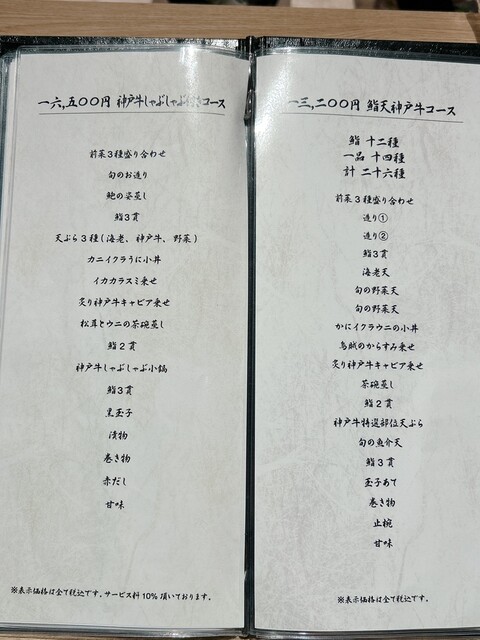 一六,五〇〇円 神戸牛しゃぶしゃぶ付きコース
前菜3種盛り合わせ
旬のお造り
鮑の姿蒸し
鮨3貫
天ぷら3種(海老、神戸牛、野菜)
カニイクラうに小丼
イカカラスミ乗せ
炙り神戸牛キャビア乗せ
松茸とウニの茶碗蒸し
鮨2貫
神戸牛しゃぶしゃぶ小鍋
鮨3貫
黒玉子
漬物
巻き物
赤だし
甘味
※表示価格は全て税込です。サービス料10%頂いております。
一三,二〇〇円 鮨天神戸牛コース
鮨 十二種
一品 十四種
計 二十六種
前菜3種盛り合わせ
造り①
造り②
鮨3貫
海老天
旬の野菜天
旬の野菜天
かにイクラウニの小丼
烏賊のからすみ乗せ
炙り神戸牛キャビア乗せ
茶碗蒸し
鮨2貫
神戸牛特選部位天ぷら
旬の魚介天
鮨3貫
玉子あて
巻き物
止椀
甘味
※表示価格は全て税込です。